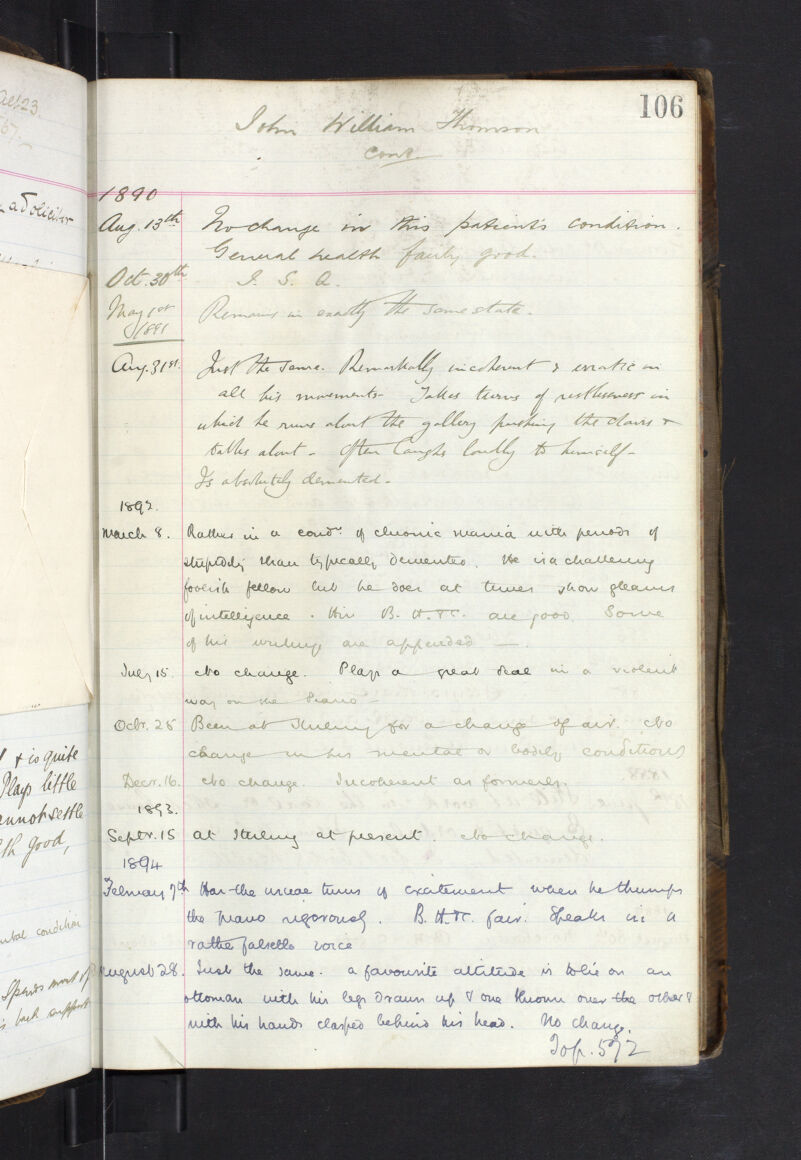 Aet. 23
a Solicitor
& is quite
Plays little
cannot settle
good,
mental condition
Spends most of
back support
106
John William Thomson
cont
1890
Aug. 13th No change in this patient's condition.
General health fairly good.
Oct. 30th I. S. Q.
May 1st Remains in exactly the same state.
1891
Aug. 31st. Just the same. Remarkably incoherent & erratic in
all his movements. Takes turns of restlessness in
which he runs about the gallery pushing the chairs &
talks about. Often laughs loudly to himself.
Is absolutely demented.
1892.
March 8. Rather in a condn. of chronic mania with periods of
stupidity than typically demented. He is a chattering
foolish fellow but he does at times show gleams
of intelligence. His B. H. &c. are good. Some
of his writings are appended —.
July 15. No change. Plays a great deal in a violent
way on the Piano –
Octr. 28 Been at for a change of air. No
change in his mental or bodily conditions
Decr. 16. No change. Incoherent as formerly.
1893.
Septr. 15 at at present. No change.
1894
February 7th Has the usual turns of excitement when he thumps
the piano vigorously. B. H. &c. fair. Speaks in a
rather falsetto voice
August 28. Just the same. A favourite attitude is to lie on an
ottoman with his legs drawn up & one thrown over the other &
with his hands clasped behind his head. No change.
To p. 592